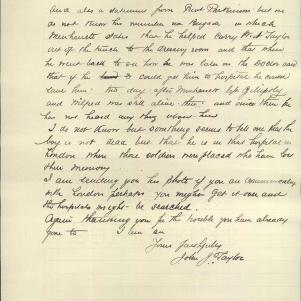 And also a statement from Private Parkinson but we
do not know his number nor Brigade in which
Menhennet states that he helped carry Pvt Taylor
out of the trench to the dressing room and that when
he went back to see how he was later on the Doctor said
that if he could get him to hospital he could
save him. the day after Menhennet left Gallipoli
and Wilfred was still alive then and since then he
has not heard anything about him
I do not know but something seems to tell me that the
boy is not dead but that he is in that hospital in
London where those soldiers were placed who have lost
their memory.
I am sending you his photo if you are communicating
with London perhaps you might get it over and
the hospitals might be searched.
Again thanking you for the trouble you have already
gone to I am Sir
Yours faithfully
John J. Taylor